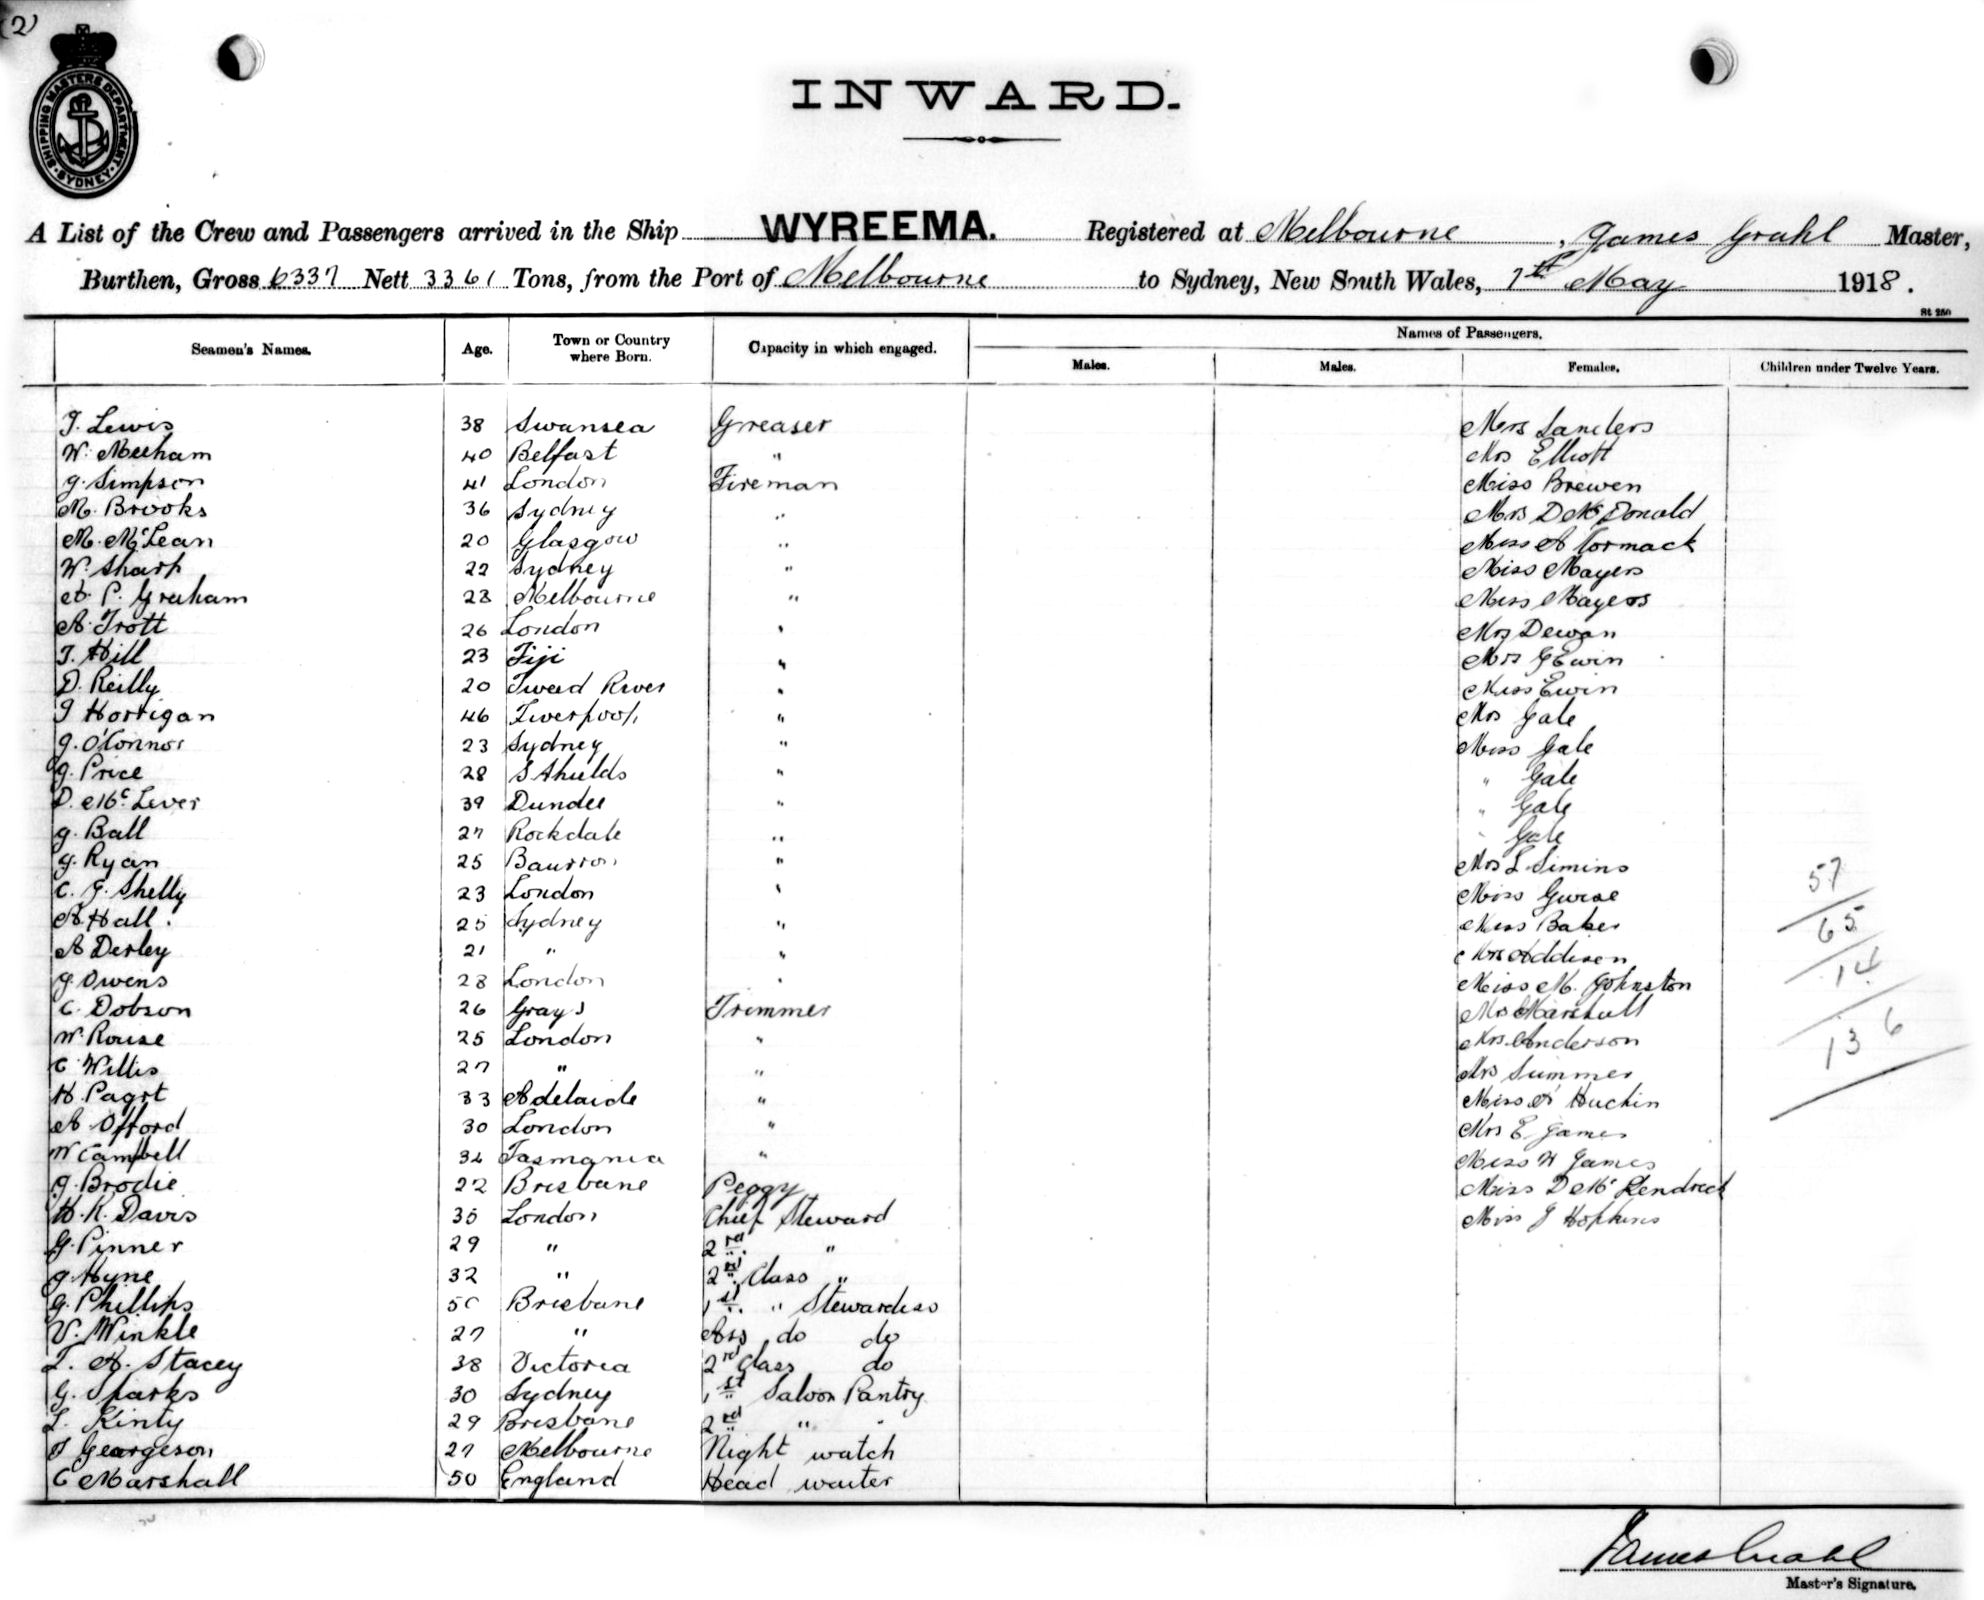 (2)
SHIPPING MASTERS DEPARTMENT SYDNEY
INWARD.
A List of the Crew and Passengers arrived in the Ship WYREEMA. Registered at Melbourne, James Grahl Master,
Burthen, Gross 6337 Nett 3361 Tons, from the Port of Melbourne to Sydney, New South Wales, 7th May 1918.
St 250
Seamen's Names. Age. Town or Country where Born. Capacity in which engaged. Names of Passengers.
Males. Males. Females. Children under Twelve Years.
T. Lewis 38 Swansea Greaser Mrs Sanders
W. Meeham 40 Belfast " Mrs Elliott
J. Simpson 41 London Fireman Miss Brewen
M. Brooks 36 Sydney " Mrs D McDonald
M. McLean 20 Glasgow " Miss A Cormack
W. Sharp 22 Sydney " Miss Mayers
A. P. Graham 23 Melbourne " Miss Mayers
A. Trott 26 London " Mrs Dewan
T. Hill 23 Fiji " Mrs G Ewin
D. Reilly 20 Tweed River " Miss Ewin
J Horrigan 46 Liverpool " Mrs Gale
J. O'Connor 23 Sydney " Miss Gale
J. Price 28 S Shields " " Gale
D. McLever 39 Dundee " " Gale
J. Ball 27 Rockdale " " Gale
J. Ryan 25 " Mrs L Simins
C. J. Shelly 23 London " Miss Gurse 57
A Hall. 25 Sydney " Miss Baker 65
A Derley 21 " " Mrs Addison
J. Owens 28 London " Miss M. Johnston 14
C. Dobson 26 Grays Trimmer Mrs Marshall
W. Rouse 25 London " Mrs Anderson 136
C Willis 27 " " Mrs Summer
H. Pagot 33 Adelaide " Miss A Huchin
A Offord 30 London " Mrs E. James
W Campbell 32 Tasmania " Miss H James
J. Brodie 22 Brisbane Peggy Miss D McKendrick
H. K. Davis 35 London Chief Steward Miss J Hopkins
G. Pinner 29 " 2nd. "
J. Hyne 32 " 2nd. Class "
G. Phillips 50 Brisbane 1st. " Stewardess
V. Winkle 27 " Ass do do
T. H. Stacey 38 Victoria 2nd Class do
G. Sparks 30 Sydney 1st Saloon Pantry
L. Kinty 29 Brisbane 2nd " "
J Geargeson 27 Melbourne Night watch
C Marshall 50 England Head waiter
James Grahl
Master's Signature.